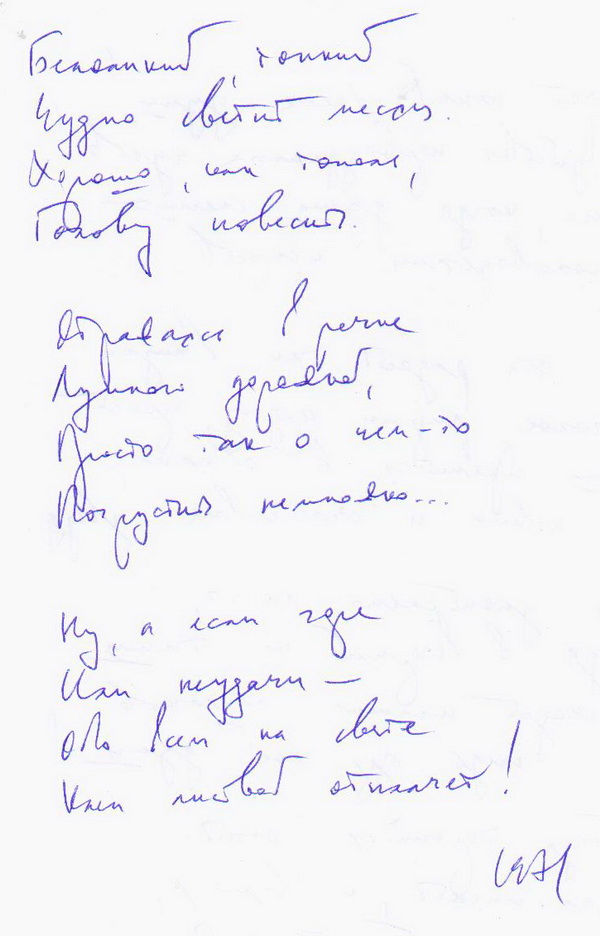 Белоликий, тонкий
Чудно светит месяц.
Хорошо, как тополь,
Голову повесить.
Отражаясь в речке
Лунною дорожкой,
Просто так о чем-то
Погрустить немножко...
Ну, а если горе
Или неудачи –
Обо всем на свете
Ива листвой отплачет!